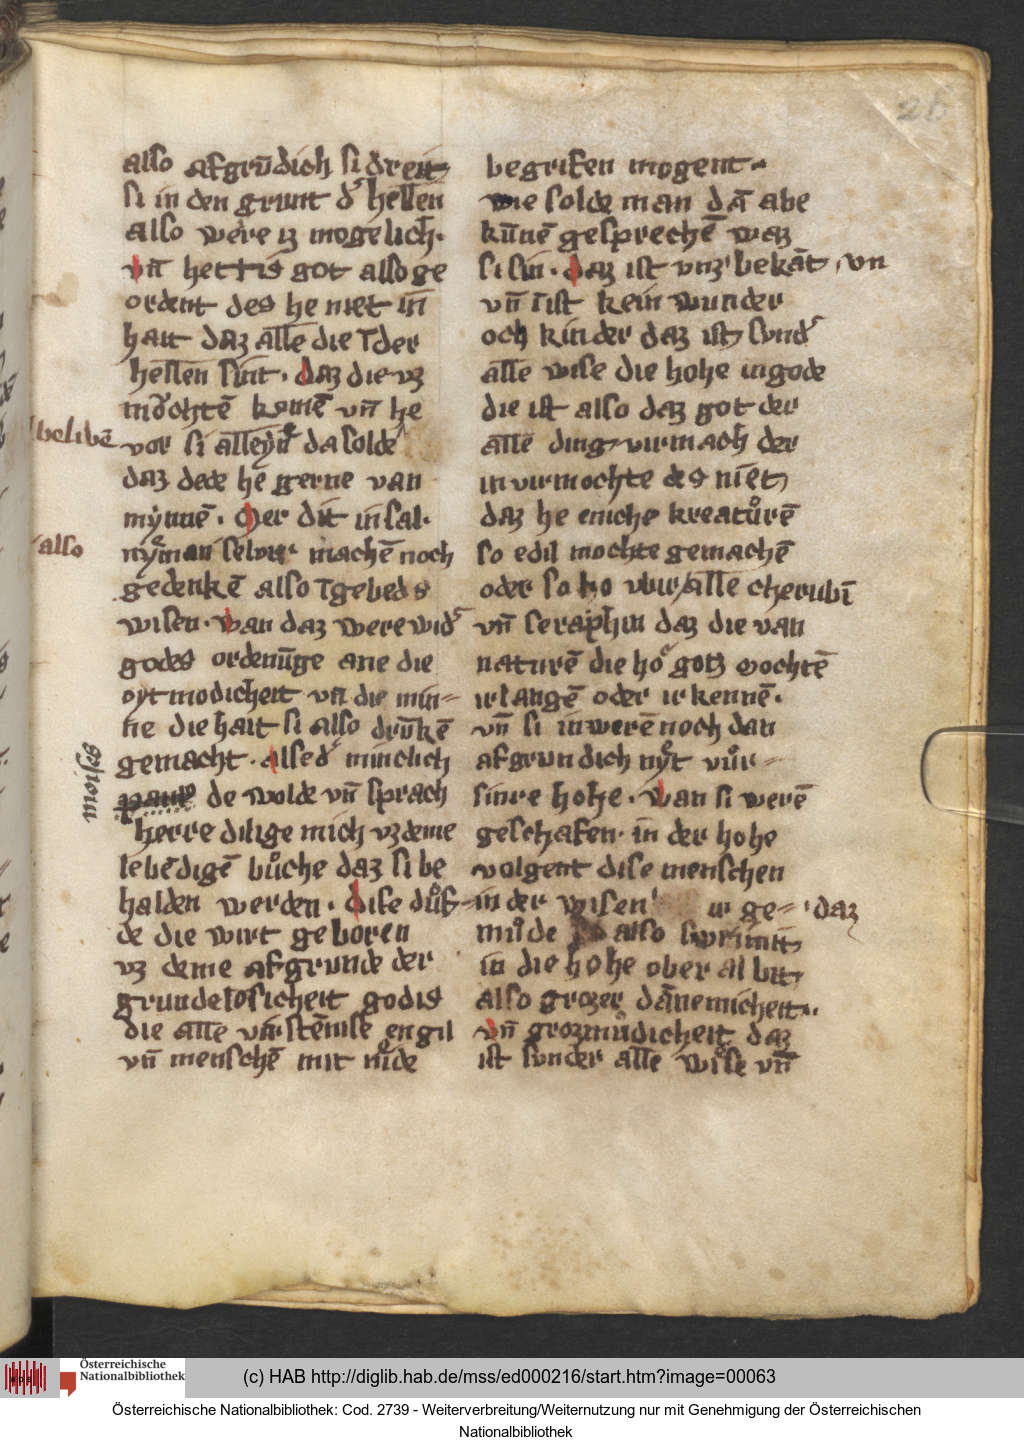 26
also afgrūdich si dreit
si in den grunt dʼ hellen
also were iz mogelich·
vn̄ hettis got also ge
ordent des he niet in̄
hait daz alle die ī der
hellen sint· daz die vz
mochtē komē vn̄ he
belibē
vor si da solde
daz dede he gerne van
mynnē· Mer dit in sal·
also
nyman machē noch
gedenkē also ī gebeds
wisen· wan daz were widʼ
godes ordenūge ane die
oytmodicheit vn̄ die min-
ne die hait si also drūkē
gemacht· alse dʼ minclich
moises
de wolde vn̄ sprach
herre dilige mich vz deme
lebēdigē bůche daz si be
halden werden· dise důf-
de die wirt geboren
vz deme afgrunde der
grundelosicheit godis
die alle engil
vn̄ menschē mit
begrifen mogent·
wie solde man dā abe
kūnē gesprechē waz
si sin· daz ist vnzʼ bekāt, vn
vn̄ ist kein wunder
och kinder daz ist sundʼ
alle wise die hohe in gode
die ist also daz got der
alle ding virmach der
in virmochte des niet
daz he eniche kreatůrē
so edil mochte gemachē
oder so ho vbir alle cherubī
vn̄ seraphin daz die van
naturē die hoʼ gotz mochtē
irlangē oder irkennē·
vn̄ si in werē noch dan
afgrundich vůr-
sinre hohe· wan si werē
geschafen· in der hohe
volgent dise menschen
in der wisen ir ge- daz
můde also
in die hohe ober al bit
also grozer dānemicheit·
vn̄ grozmůdicheit daz
ist sunder alle wise vn̄
Österreichische
Nationalbibliothek
(c) HAB http://diglib.hab.de/mss/ed000216/start.htm?image=00063
Österreichische Nationalbibliothek: Cod. 2739 - Weiterverbreitung/Weiternutzung nur mit Genehmigung der Österreichischen
Nationalbibliothek